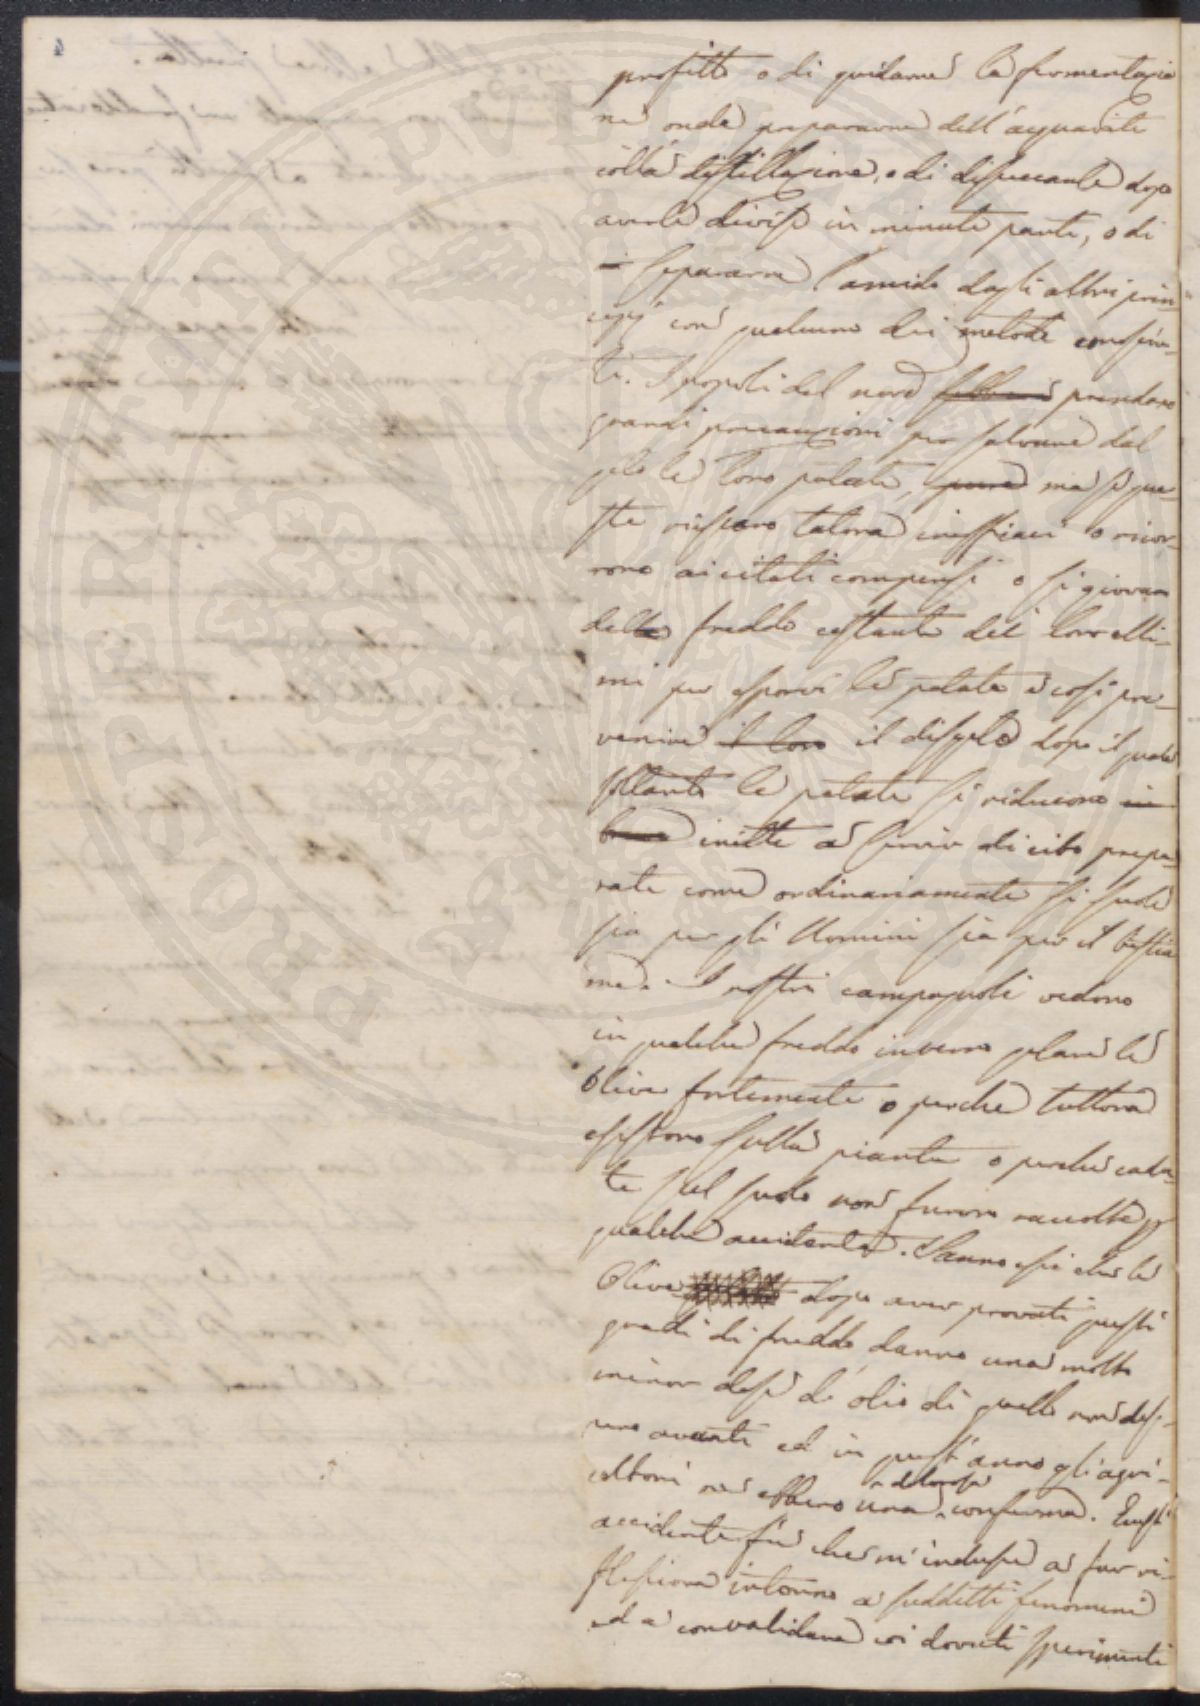 profitto o di guidarne la fermentazio
ne onde prepararne dell'acquavite
colla distillazione, o di disseccarle dopo
averle divise in minute parti, o di
separarne l'amido dagli altri prin-
cipj con qualcuno dei metodi conosciu-
ti. I popoli del nord prendono
grandi precauzioni per salvare dal
gelo le loro patate, ma se que-
ste riescano talora inefficaci o ricor-
rono ai citati compensi o si giovan
del freddo costante dei loro cli-
mi per esporvi le patate e così pre-
venire il loro il disgelo dopo il quale
soltanto le patate si riducono in
inette a servir di cibo prepa-
rate come ordinariamente si suole
sia per gli Uomini sia per il bestia
me. I nostri campagnoli vedono
in qualche freddo inverno gelare le
Olive fortemente o perche tuttora
esistono sulla pianta o perche cadu-
te sul suolo non furono raccolte p
qualche accidente. Sanno essi che le
Olive dopo aver provati questi
gradi di freddo danno una molto
minor dose di olio di quelle non dis-
avanti ed in quest'anno gli agri-
coltori ne ebbero una dolorosa conferma. Questo
accidente fù che m'indusse a far ri-
flessione intorno a suddetti fenomeni
ed a convalidare coi dovuti sperimenti
PROSPERITATI PVBLICAE